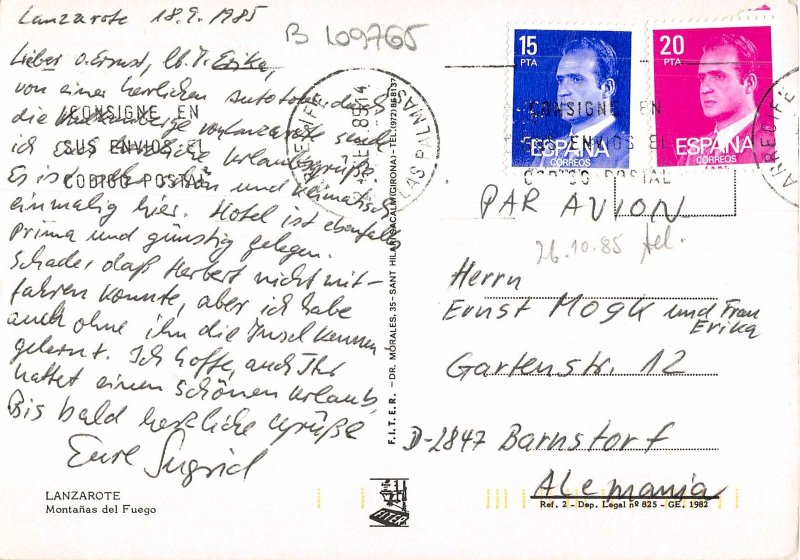 Lanzarote 18.9.1985
B 109765
Lieber O. Ernst, lb. T. Erika,
von einer herrlichen Autotour durch
die von Lanzarote sende
ich Euch herzliche Urlaubsgrüße.
Es ist schön und klimatisch
einmalig hier. Hotel ist ebenfalls
Prima und günstig gelegen.
Schade, daß Herbert nicht mit-
fahren konnte, aber ich habe
auch ohne ihn die Insel kennen
gelernt. Ich hoffe, auch Ihr
hattet einen schönen Urlaub.
Bis bald herzliche Grüße
Eure Ingrid
LANZAROTE
Montañas del Fuego
F.I.T.E.R. - DR. MORALES, 35 - SANT HILARI SACALM (GIRONA) - TEL. (972) 868137
FITER
CONSIGNE EN
SUS ENVIOS EL
CODIGO POSTAL
ARRECIFE
LAS PALMAS
15
PTA
ESPAÑA
CORREOS
20
PTA
ESPAÑA
CORREOS
F.N.M.T.
CONSIGNE EN
SUS ENVIOS EL
CODIGO POSTAL
ARRECIFE
PAR AVION
26.10.85 tel.
Herrn
Ernst Mogk und Frau
Erika
Gartenstr. 12
D-2847 Barnstorf
Alemania
Ref. 2 - Dep. Legal nº 825 - GE. 1982